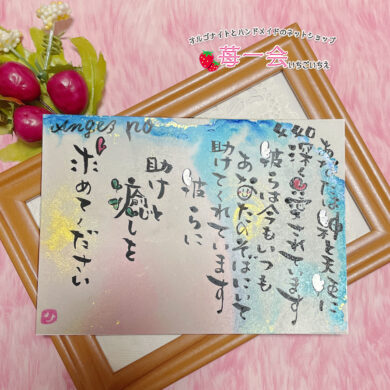 オルゴナイトとハンドメイドのネットショップ
苺一会
いちごいちえ
440
あなたは神と天使に
深く愛されています
彼らは今もいつも
あなたのそばにいて
助けてくれています
彼らに
助けと
癒しを
求めてください